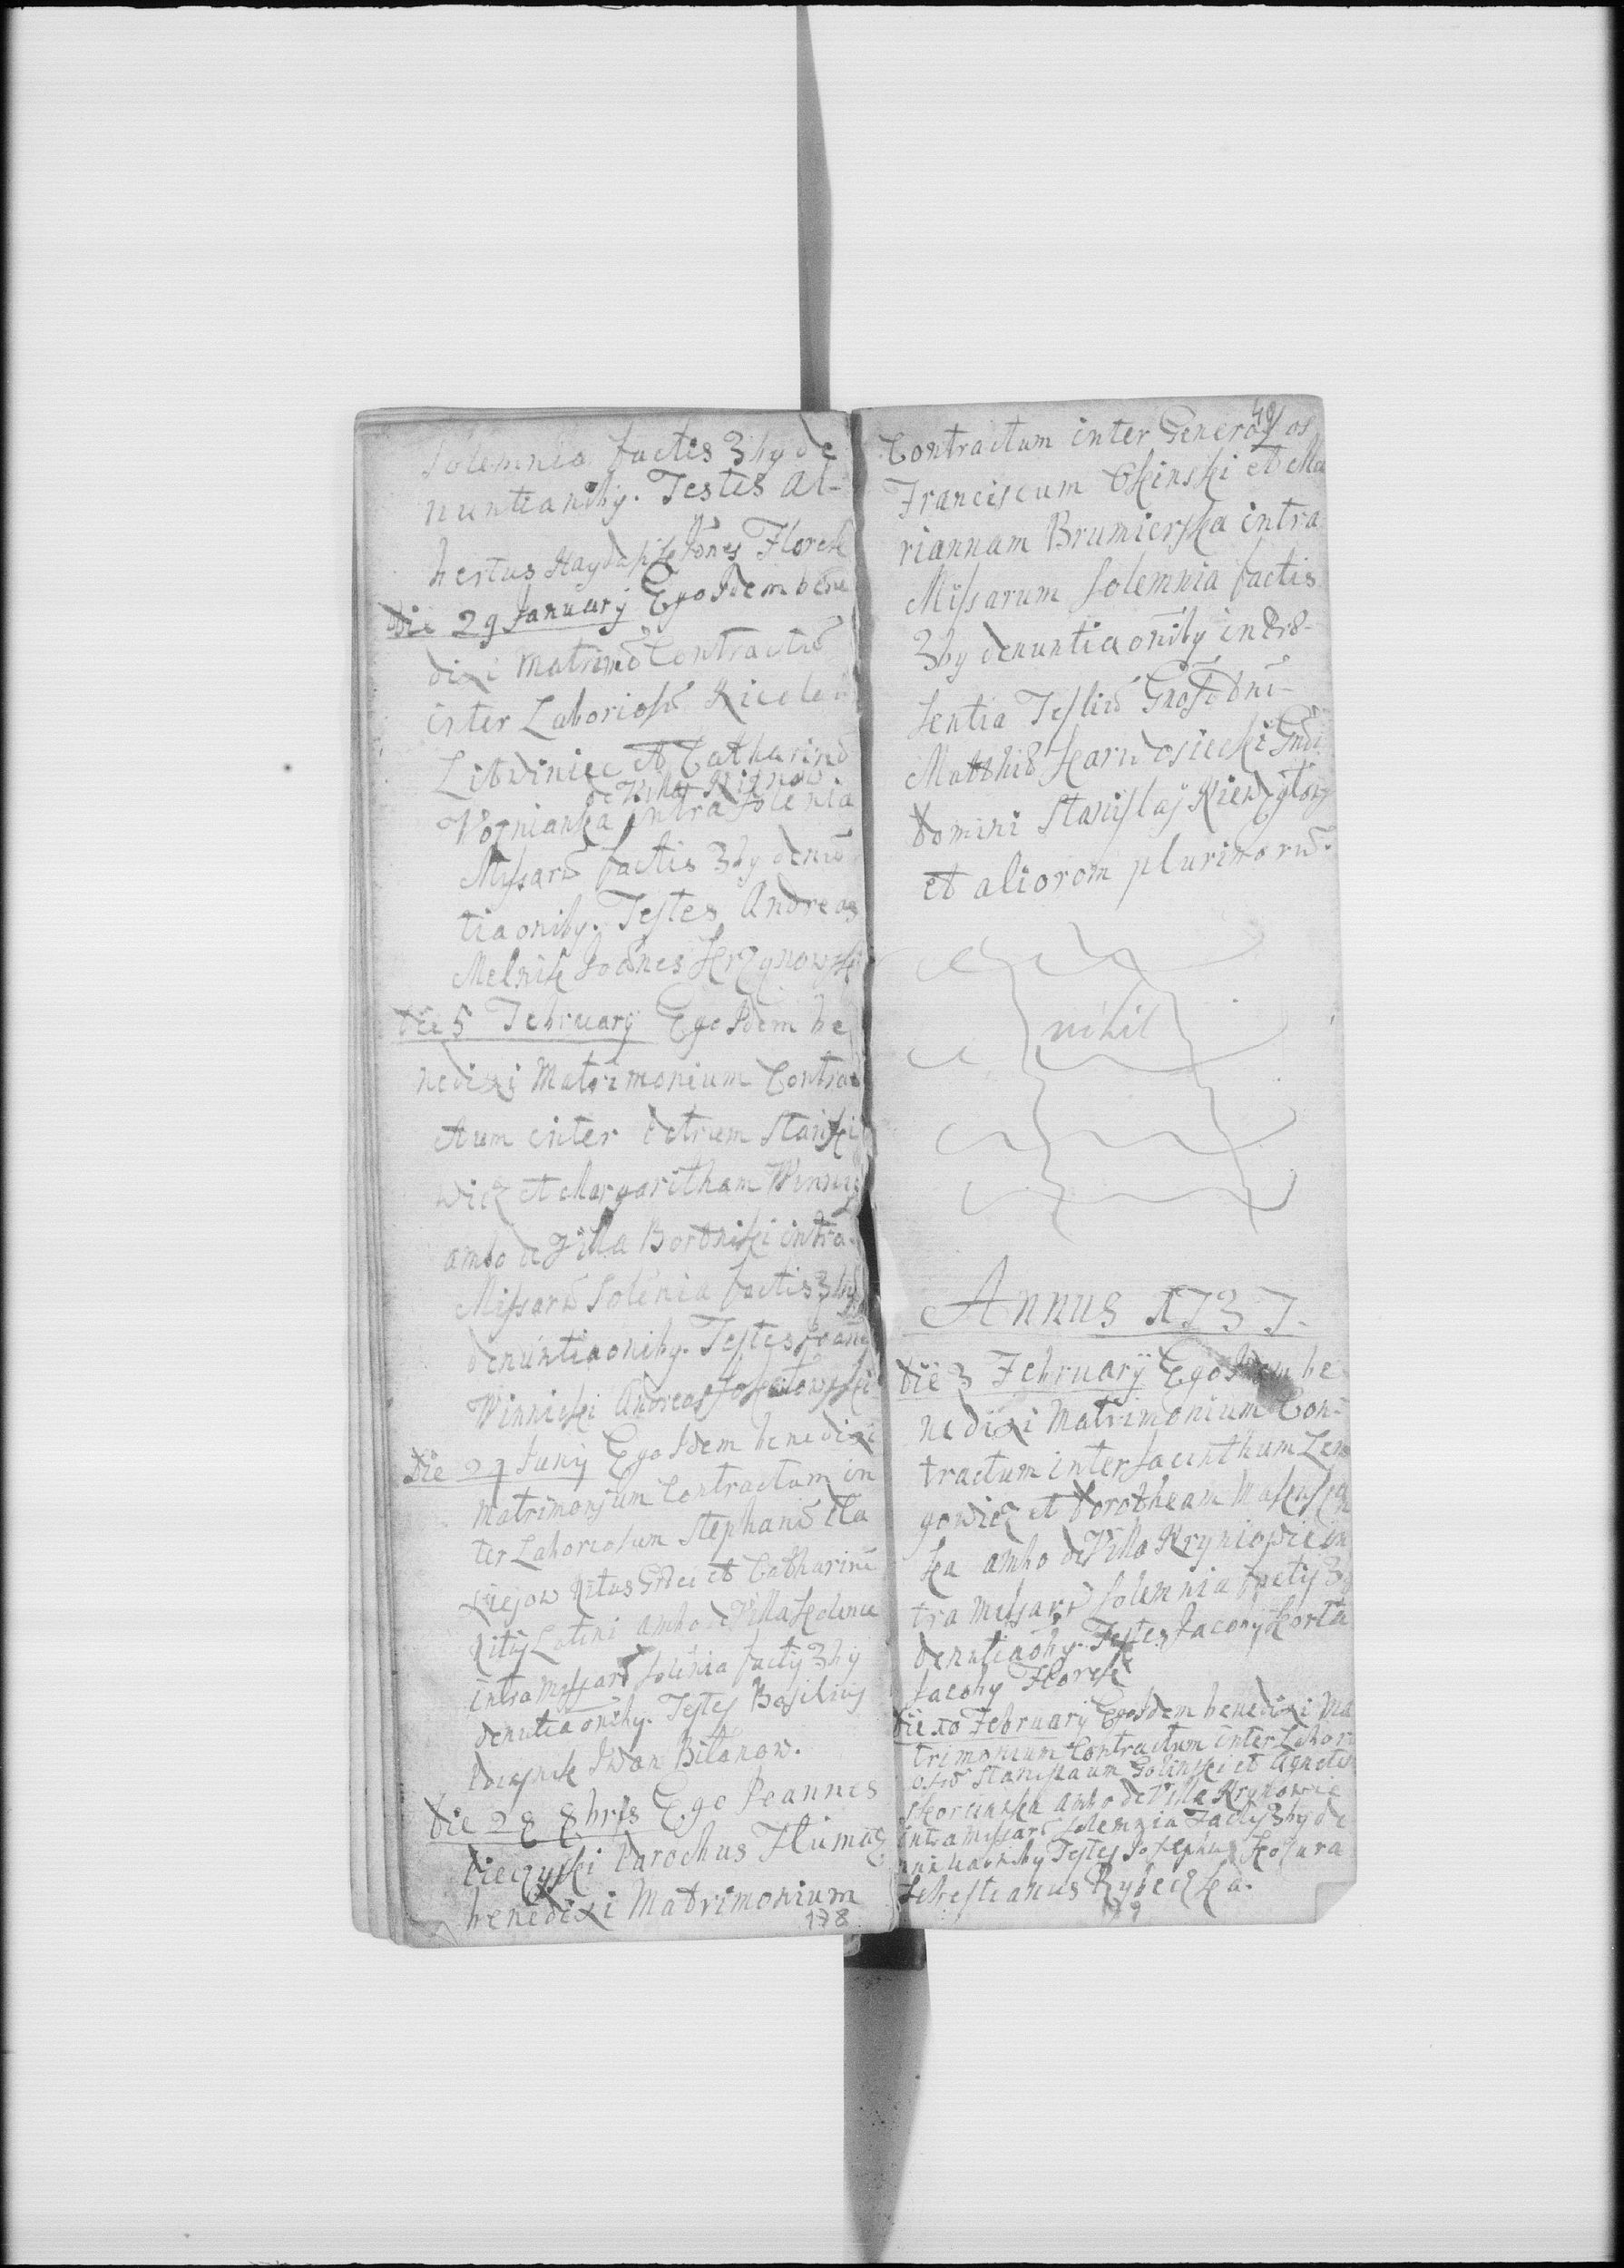 Solemnia factis 3by de
nuntianiby. Testes Al-
bertus Haydasik Joñes Florek
die 29 January Ego Idem bene
dixi Matrimõ Contractũ
inter Laboriosũ Nicolaũ
Litwiniec et Catharinã
de Villa
Woznianka intra Solenia
Missarũ factis 3by denũ
tiaoniby. Testes Andreas
Melnik Joãnes Skrzynowski
die 5 February Ego Idem be
nedixi Matrimonium Contra
ctum inter Petrum Stanki
wicz et Margaritham Winnic
ambo de Villa Bortniki intra
Missarũ Solẽnia factis 3by
denuntiaoniby. Testes Joañes
Winnicki Andreas
die 27 Juny Ego Idem benedixi
Matrimonium Contractum in
ter Laboriosum Stephanũ
Ritus Graeci et Catharinã
Ritus Latini ambo de Villa
intra Missarũ Solẽnia factis 3by
denutiaoniby. Testes Basilius
Iwan Bilanow.
Die 28 8bris Ego Joannes
Parochus Tlumac
benedixi Matrimonium
178
49
Contractum inter Generosos
Franciscum Osinski et Ma
riannam Brumierska intra
Missarum Solemnia factis
3by denuntiaoniby in Præ-
sentia Testiũ Gnosi Dni-
Matthiæ Karwosiecki Gnsi
Domini Stanislay
et aliorom plurimorũ.
nihil
Annus 1737.
die 3 February Ego Idem be
nedixi Matrimonium Con-
tractum inter Jacinthum Zen
gowicz et Dorotheam
ka ambo de Villa Kryniowie in
tra Missarũ Solemnia factis 3by
denutiaoby. Testes Jacoby Korta
Jacoby Florek
die 10 February Ego Idem benedixi Ma
trimonium Contractum inter Labori
osũ Stanislaum Golinski et Agnetem
Skorcianska ambo de Villa Krynowie
intra Missarũ Solemnia Factis 3by de
nunciaoniby Testes Josephus Kosura
Sebestianus Rybeczka.
179